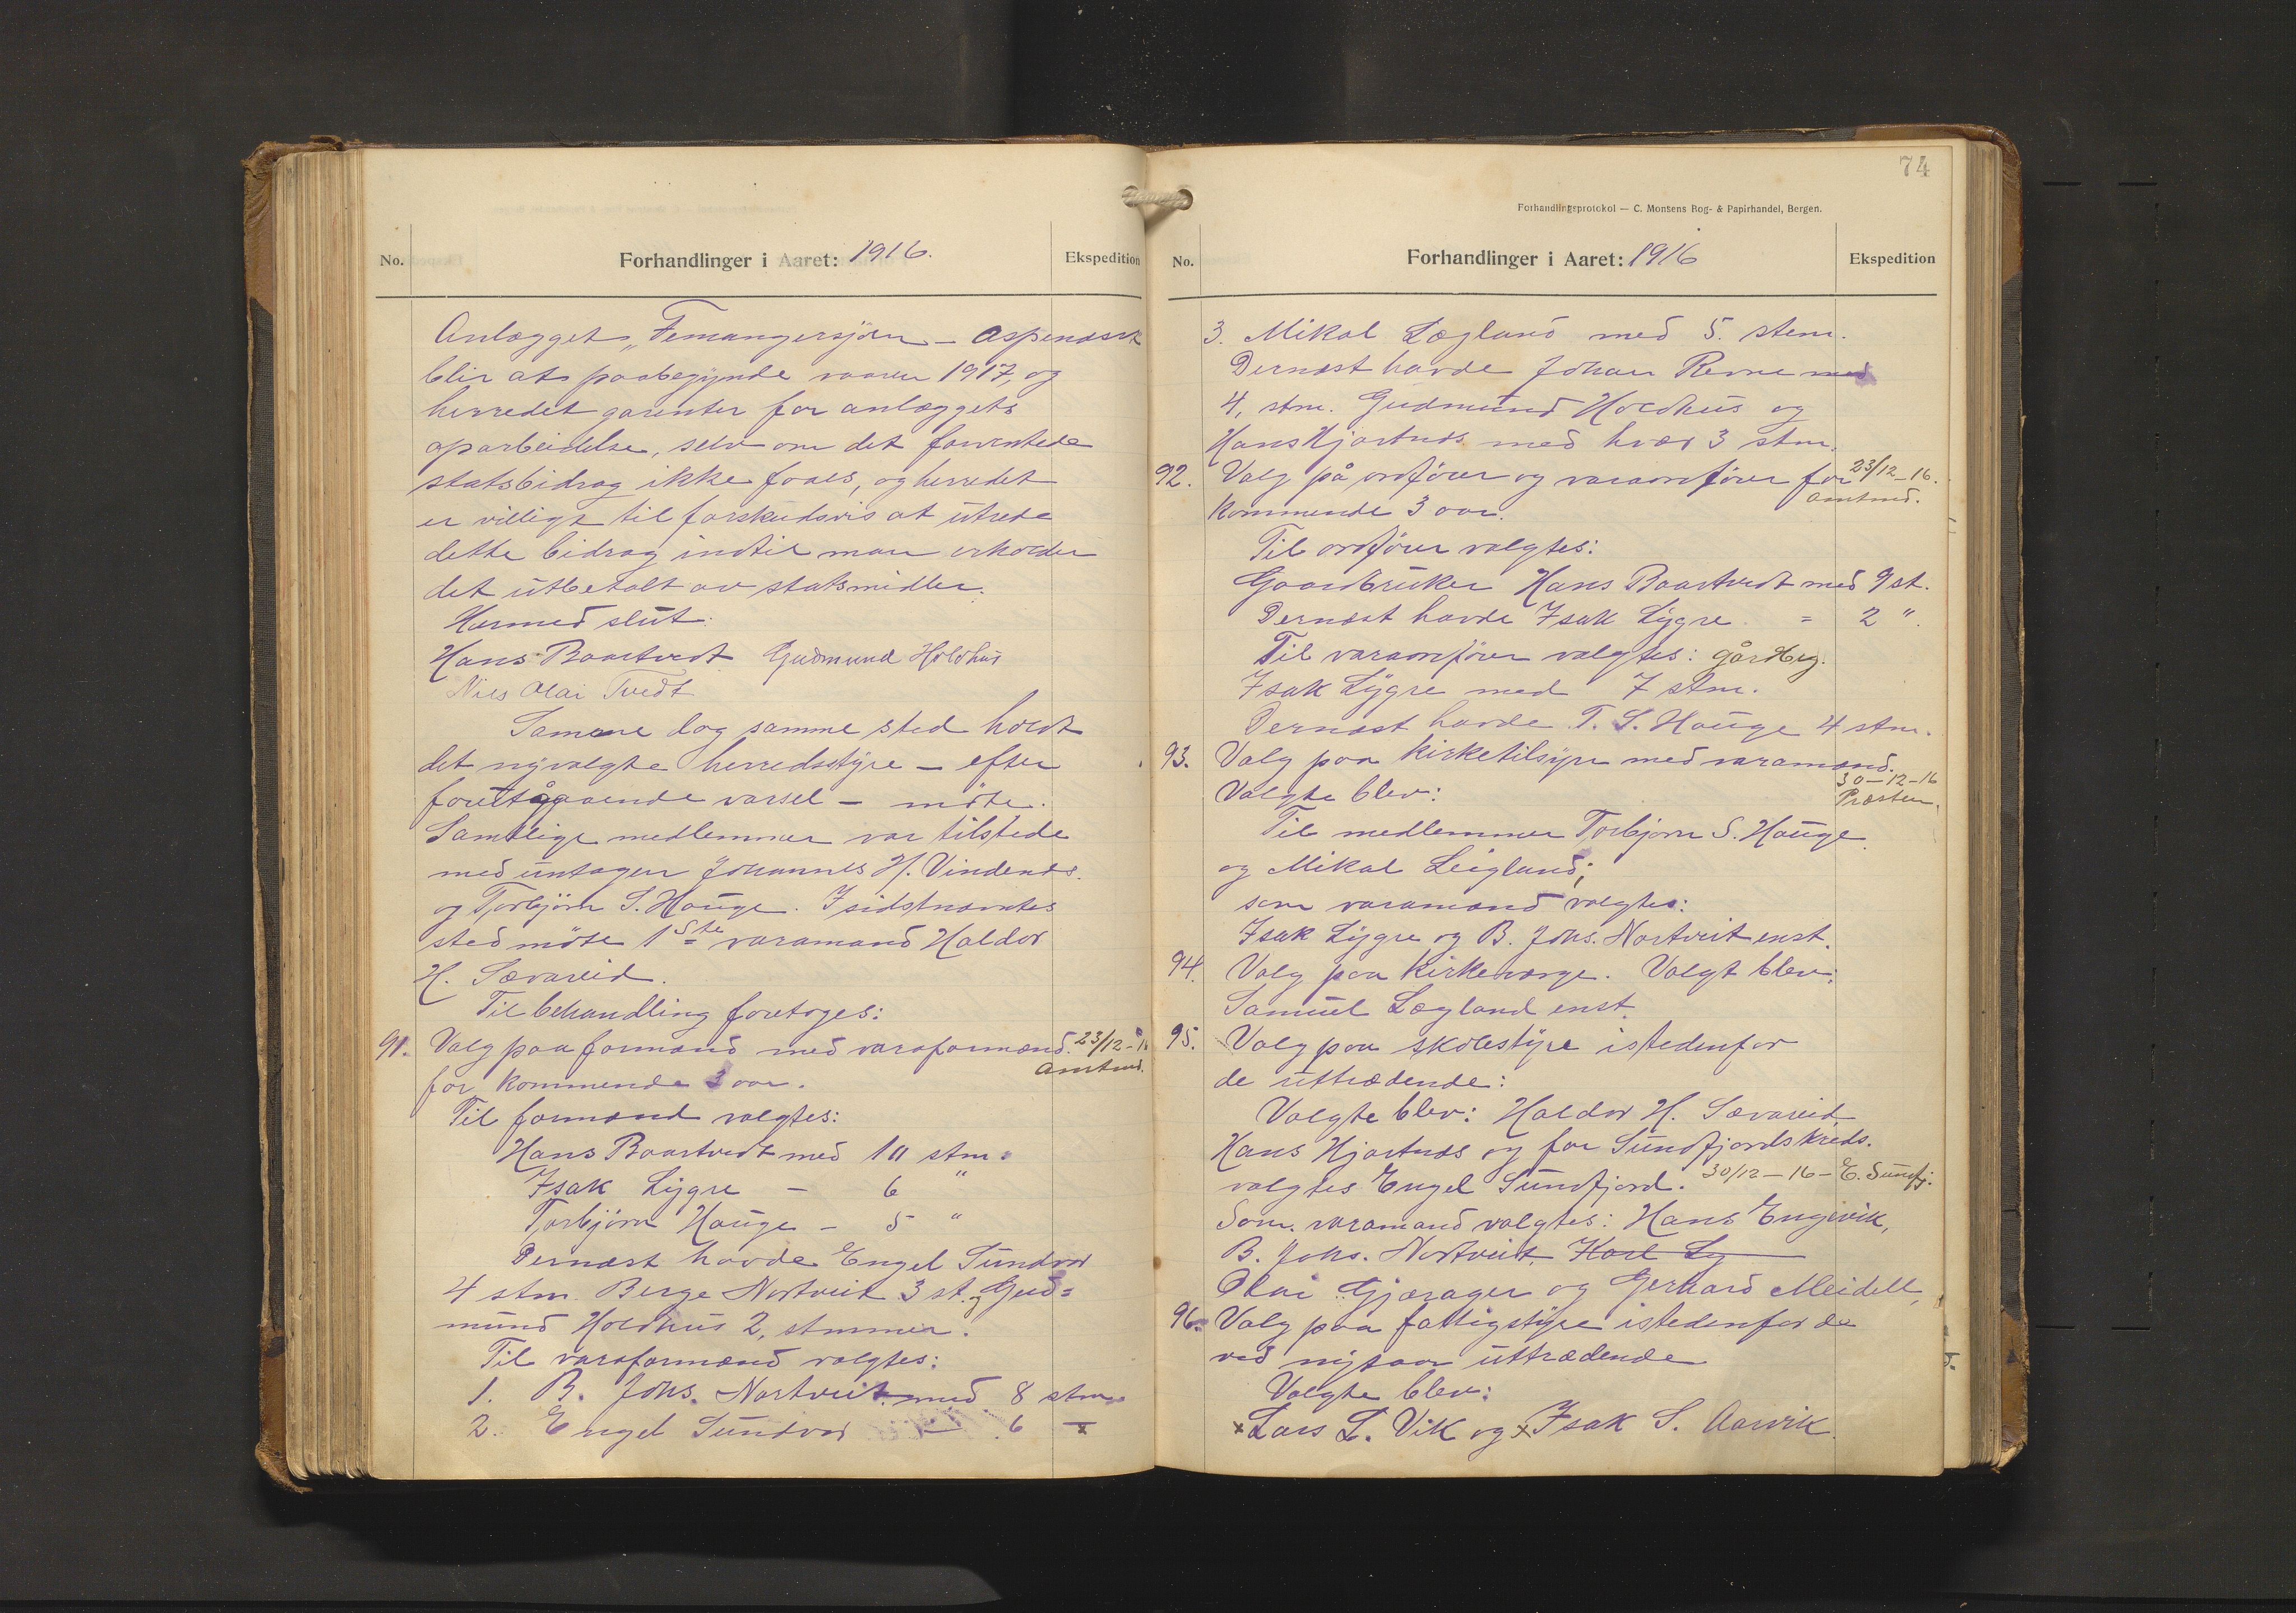 No.
Forhandlinger i Aaret: 1916.
Ekspedition
Anlægget „Femangersjøen – Aspenæsvk
blir at paabegynde vaaren 1917, og
herredet garenter for anlæggets
oparbeidelse, selv om det forventede
statsbidrag ikke faaes, og herredet
er villigt til forskudsvis at utrede
dette bidrag indtil man erholder
det utbetalt av statsmidler.
Hermed slut.
Hans Baartvedt Gudmund Holdhus
Nils Olai Tvedt
Samme dag samme sted holdt
det nyvalgte herredsstyre – efter
foretgaaende varsel – møte.
Samtlige medlemmer var tilstede
med untagen Johannes H. Vindenes.
og Torbjørn S. Hauge. I sidstnævntes
sted møte 1ste varamand Haldor
H. Sævareid.
Til behandling foretoges:
91. Valg paa formænd med varaformænd. 23/12-16
for kommende 3 aar. Amtmd.
Til formænd valgtes:
Hans Baartvedt med 10 stm.
Isak Lygre – 6 "
Torbjørn Hauge – 5 "
Dernæst havde Engel Sundvor
4 stm. Berge Nortveit 3 st. og Gud=
mund Holdhus 2, stmmer.
Til varaformænd valgtes:
1. B. Johs. Nortveit med 8 stm.
2. Engel Sundvor – 6 –
74
Forhandlingsprotokol — C. Monsens Bog- & Papirhandel, Bergen.
No.
Forhandlinger i Aaret: 1916
Ekspedition
3. Mikal Lægland med 5. stem.
Dernæst havde Johan Revne med
4, stm. Gudmund Holdhus og
Hans Hjartnæs med hver 3 stm.
92. Valg på ordfører og varaordfører for 23/12-16.
kommende 3 aar. Amtmd.
Til ordfører valgtes:
Gaardbruker Hans Baartvedt med 9 st.
Dernæst havde Isak Lygre = 2 "
Til varaordfører valgtes: gårdbrg.
Isak Lygre med 7 stm.
Dernæst havde T. S. Hauge 4 stm.
93. Valg paa kirketilsyn med varamænd.
30-12-16
Valgte blev: Præsten.
Til medlemmer Torbjørn S. Hauge
og Mikal Leigland;
som varamænd valgtes:
Isak Lygre og B. Johs. Nortveit enst.
94. Valg paa kirkeværge. Valgt blev:
Samuel Lægland enst.
95. Valg paa skolestyre istedenfor
de uttrædende:
Valgte blev: Haldor H. Sævareid,
Hans Hjartnæs og for Sundfjords kreds.
valgtes Engel Sundfjord. 30/12-16 – E. Sundfj.
Som varamænd valgtes: Hans Engevik,
B. Johs. Nortveit, Karl Ly
Olai Gjærager og Gerhard Meidell,
96. Valg paa fattigstyre istedenfor de
ved nytaar uttrædende
Valgte blev:
x Lars L. Vik og x Isak S. Aarvik.